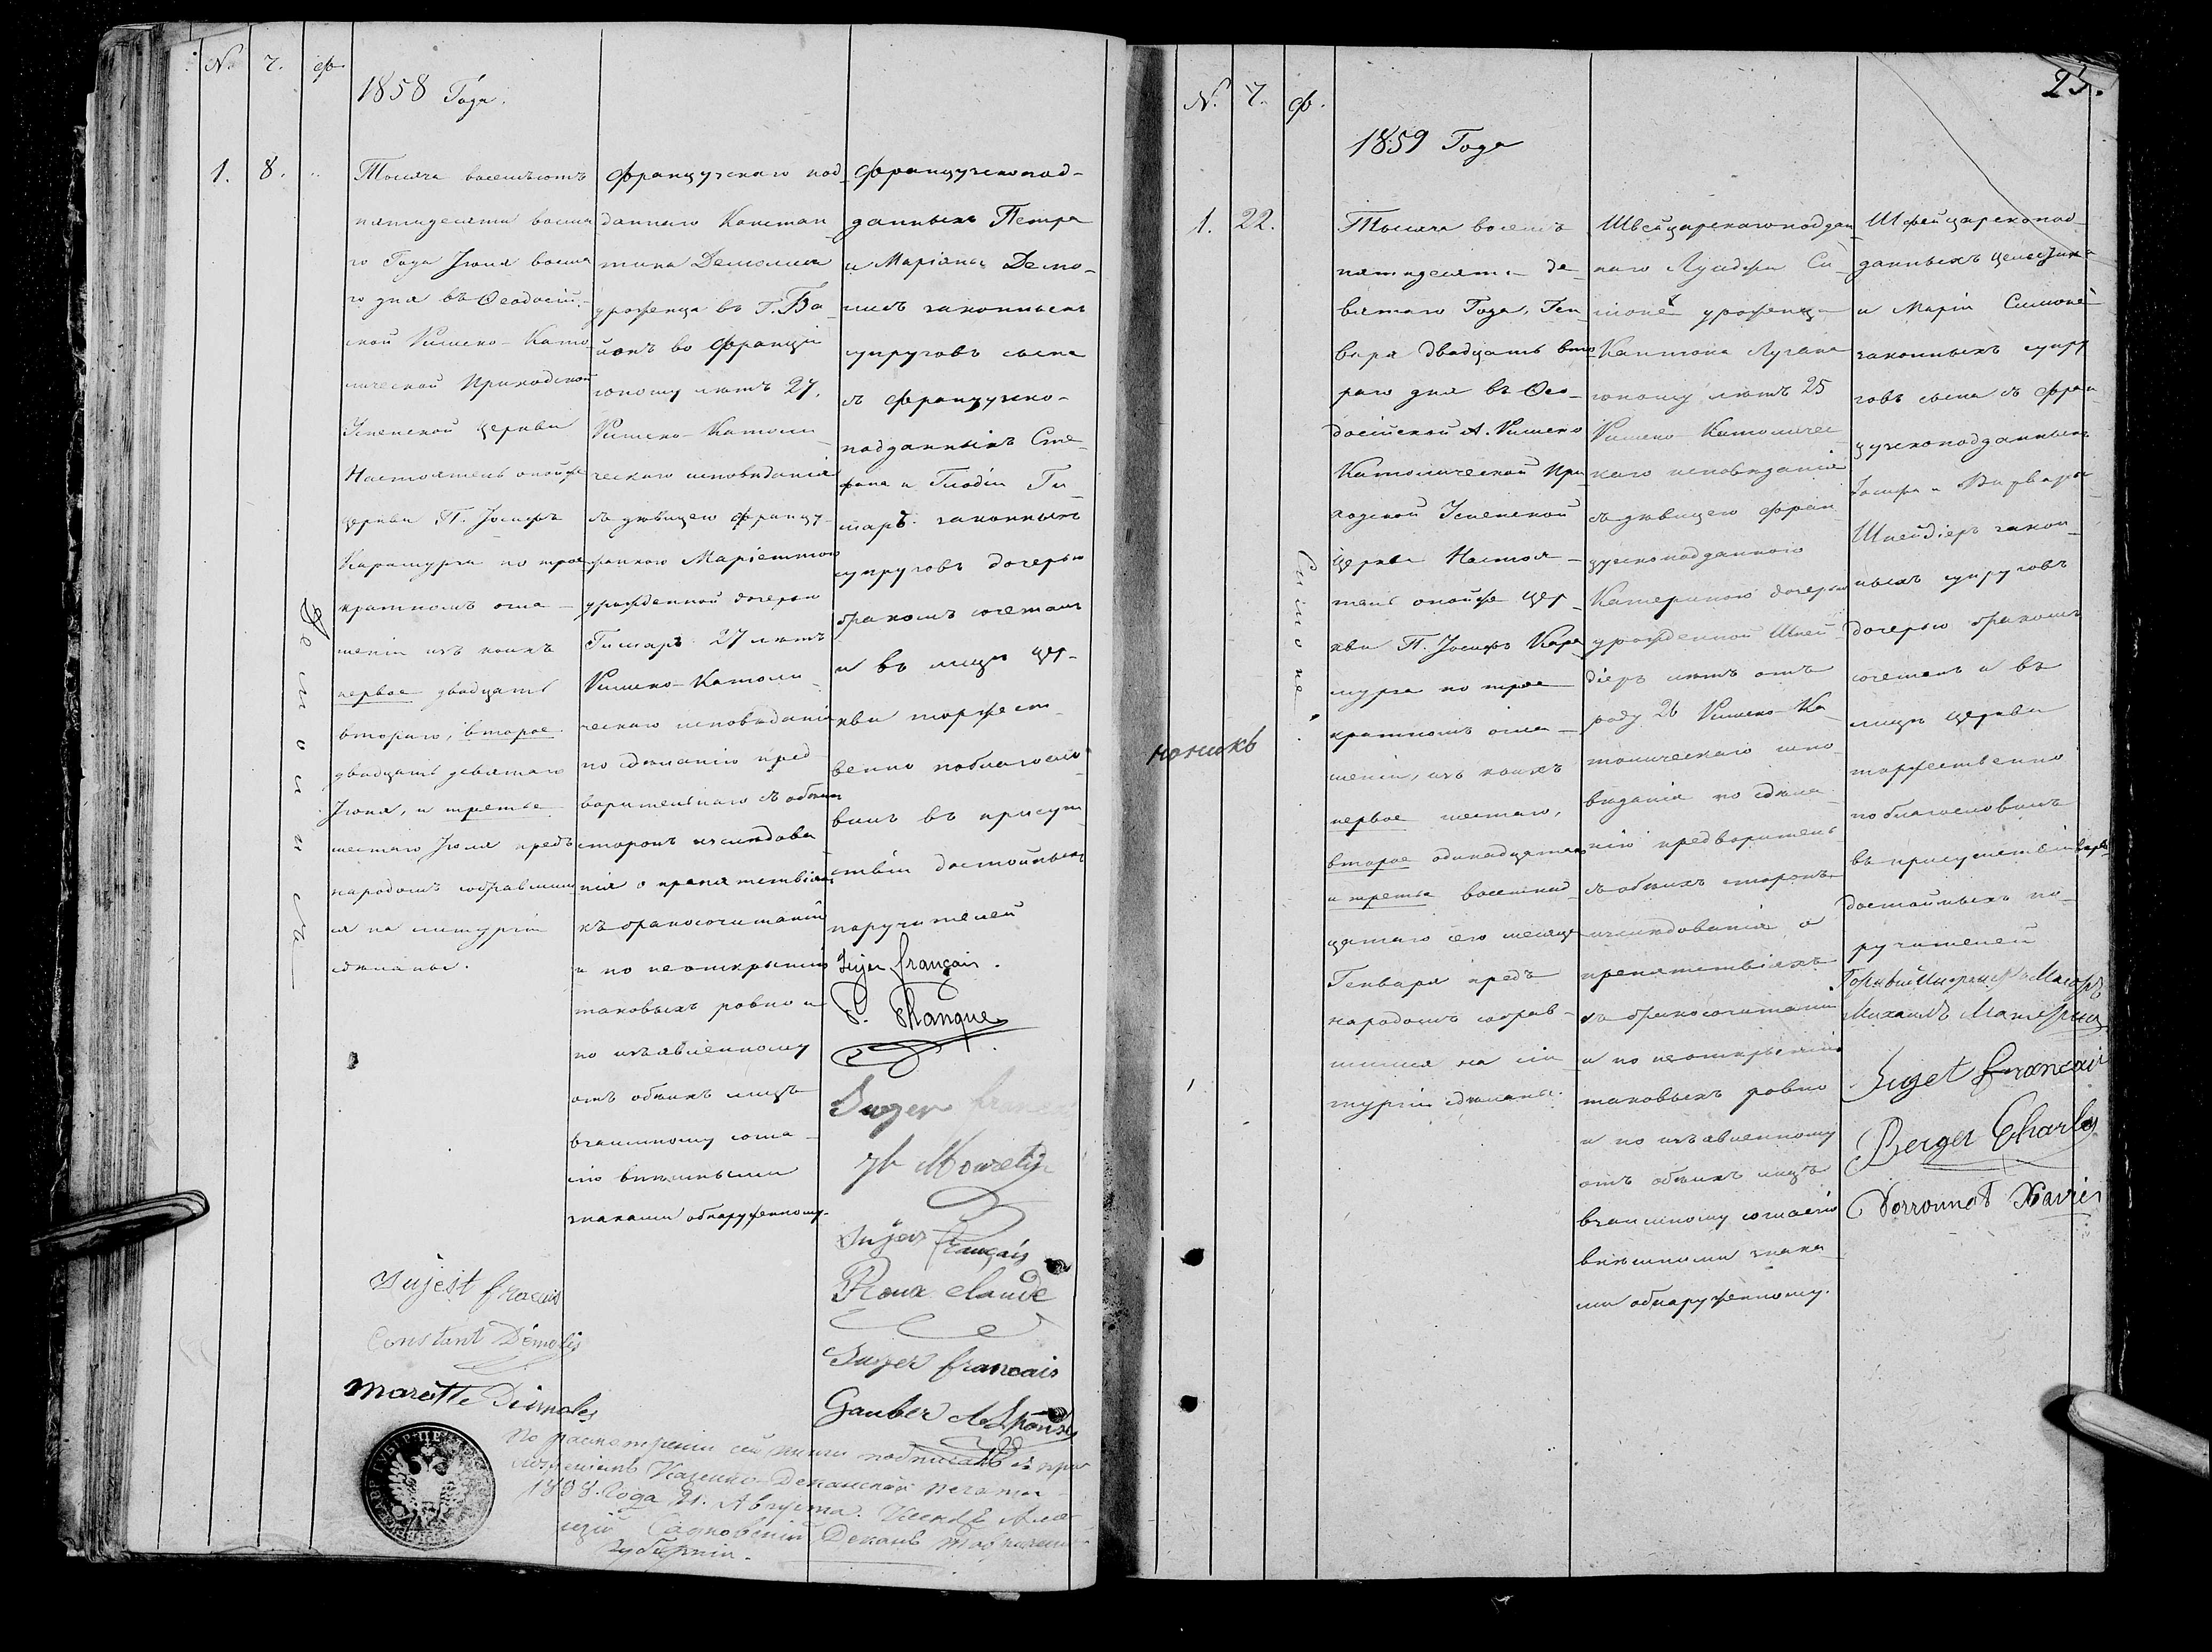 N. 7. ф.
1858 Года.
1. 8.
Тысяча восемьсотъ
пятидесяти восма
го Года Іюля восма
го дня въ Ѳеодосій-
ской Римско-Като
лической Приходской
Успенской церкви
Настоятель онойже
церкви П. Іосифъ
Карамурза по трое
кратномъ огла-
шеніи изъ коихъ
первое двадцать
втораго, второе
двадцать девятаго
Іюня, и третье
шестаго Іюля предъ
народомъ собравшим
ся на литургіи
сдѣланы.
Демолисъ
Французскаго под-
даннаго Констан
тина Демолиса
уроженца въ Г. Ба
іонъ во Франціи
юношу лѣтъ 27,
Римско-Католи
ческаго исповѣданія
съ дѣвицею Францу-
женкою Маріеттою
урожденной дочерью
27 лѣтъ
Римско-Католи
ческаго исповѣданія
по сдѣланію пред
варительнаго съ обоихъ
сторонъ изслѣдова
нія о препятствіяхъ
къ бракосочетанію
и по неоткрытію
таковыхъ равно и
по изъявленному
отъ обоихъ лицъ
взаимному согла-
сію внѣшними
знаками обнаруженному.
французскопод-
данныхъ Петра
и Маріанны Демо-
лисъ законныхъ
супруговъ сына
съ французско-
подданныхъ Сте
фана и Клодіи
законныхъ
супруговъ дочерью
бракомъ сочеталъ
и въ лицѣ цер-
кви торжест
венно поблагосло
вилъ въ присут
ствіи достойныхъ
поручителей
Sujer français.
P. Thanque
Sujer francais
Sujers français
Roux claude
Sujer francais
Gauber
Sujest fracais
Constant Démolis
Mariette Démoles
По разсмотреніи сей книги подписалъ съ при
ложеніемъ Деканской печати
1858. Года 21. Августа.
Деканъ Таврической
губерніи.
25.
N. 7. ф.
1859 Года
1. 22.
Тысяча восемь
пятидесять де-
вятаго Года, Ген-
варя двадцать вто
раго дня въ Ѳео-
досійской Римско
Католической При
ходской Успенской
церкви Настоя-
тель онойже цер-
кви П. Іосифъ Кара
мурза по трое-
кратномъ огла-
шеніи, изъ коихъ
первое шестаго,
второе одинадцатаго
и третье восемнад
цатаго сего месяца
Генваря предъ
народомъ собрав-
шимся на ли
тургіи сдѣланы.
Симоне.
Швейцарскаго поддан-
наго Луиджи Си
моне уроженца
Кантона Лугана
юношу лѣтъ 25
Римско Католичес
каго исповѣданія
съ дѣвицею фран
цузскоподданною
Катериною дочерью
урожденной Шней
діеръ лѣтъ отъ
роду 26 Римско-Ка
толическаго испо
вѣданія по сдѣла
нію предварительн
съ обоихъ сторонъ
изслѣдованія о
препятствіяхъ
къ бракосочетанію
и по неоткрытію
таковыхъ равно
и по изъявленному
отъ обоихъ лицъ
взаимному согласію
внѣшними знака
ми обнаруженному.
Швейцарскопод
данныхъ
и Маріи Симоне
законныхъ супру
говъ сына съ фран
цузскоподданныхъ
Іосифа и Варвары
Шнейдіеръ закон-
ныхъ супруговъ
дочерью бракомъ
сочеталъ и въ
лицѣ церкви
торжественно
поблагословилъ
въ присутствіи
достойныхъ по-
ручителей
Михаилъ
Sujet francais
Berger Charles
Perronnet Xavier